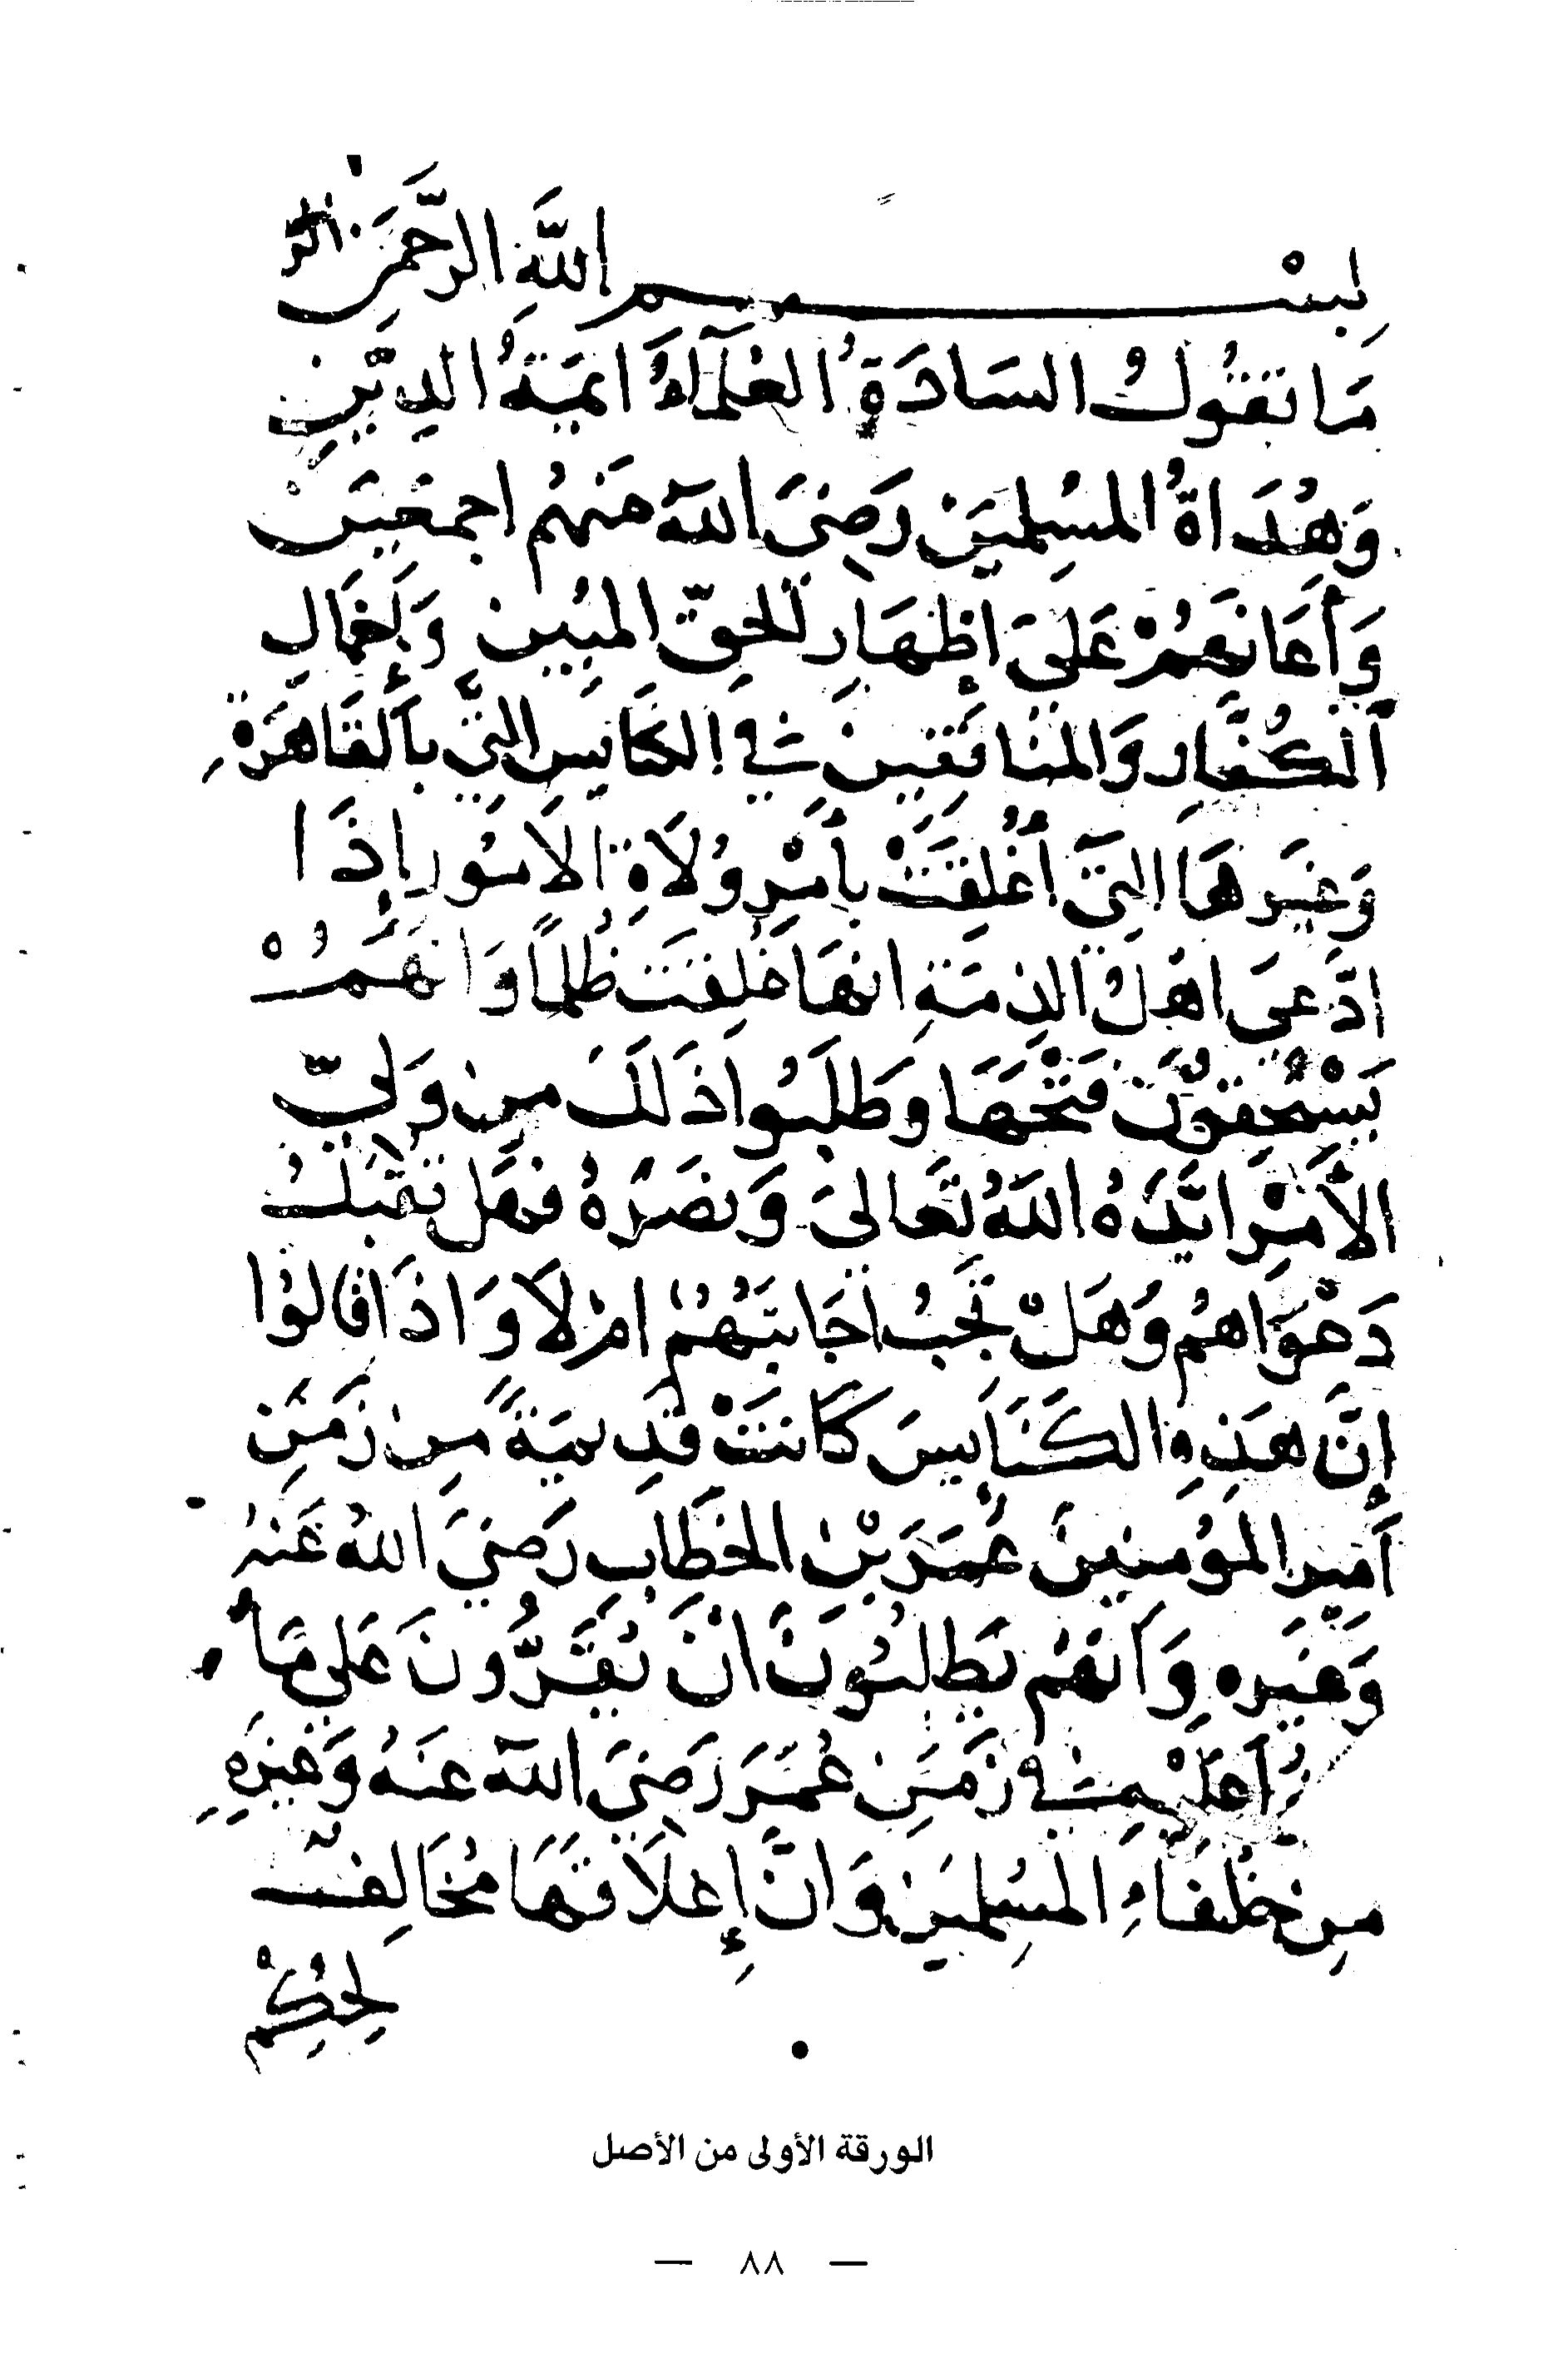 بِسْم اللَّهِ الرَّحْمَنِ الر
مَا تَقُولُ السَادَةُ العُلَمآءُ ايمَةُ الدِيْنِ
وَهُدَاةُ المسُلِميَن رَضِيَ اللهُ عَنهُم اجمعَين
وَأَعَانَهُمْ عَلَى اظِهَارِ الحِقّ المبُين وَإخمَالِ
الكُفّارِ وَالمنُافِقِين في الكَنايسِ التي بالقَاهَرة
وَغيَرهَا التي أُغْلِقَتْ بأمْرِ وُلَاةِ الامُور إذَا
ادّعىَ اهْلُ الذِمَةِ انهَا غُلِقَتَ ظُلماً وَانهَّمُْ
يَسْتَحِقُّون فَتْحَهَا وطَلَبُوا ذَلَكَ مِن وَليّ
الأَمْرِ ايَّدَهُ اللهُ تَعَالىَ وَنصَرَهُ فهَل تقُبَلُ
دَعْوَاهُم وَهَلْ تَجِبُ اجَابَتَهُمُ امْ لَا وَاذَا قَالوُا
إنَّ هَذِهِ الكَنَايسَ كَانَتْ قَدِيمَةً مِن زَمَنِ
أَمِير المؤُمنيِنَ عُمَرَ بْن الخَطابِ رَضيَ اللهُ عَنهُ
وَغيَره وَأنهُم يَطلبُونَ انَ يُقَرُّونَ عَلي مَا
أُقِرُّوا عَلَيْهِ في زَمَنِ عُمَرَ رَضيَ الله عَنهُ وَغيرَهِ
مِن خلُفَاءِ المسُلِميَن وَانَّ إغلَاقَهَا مُخَالِفٌ
لِحُكْم
الورقة الأولى من الأصل
— ٨٨ —